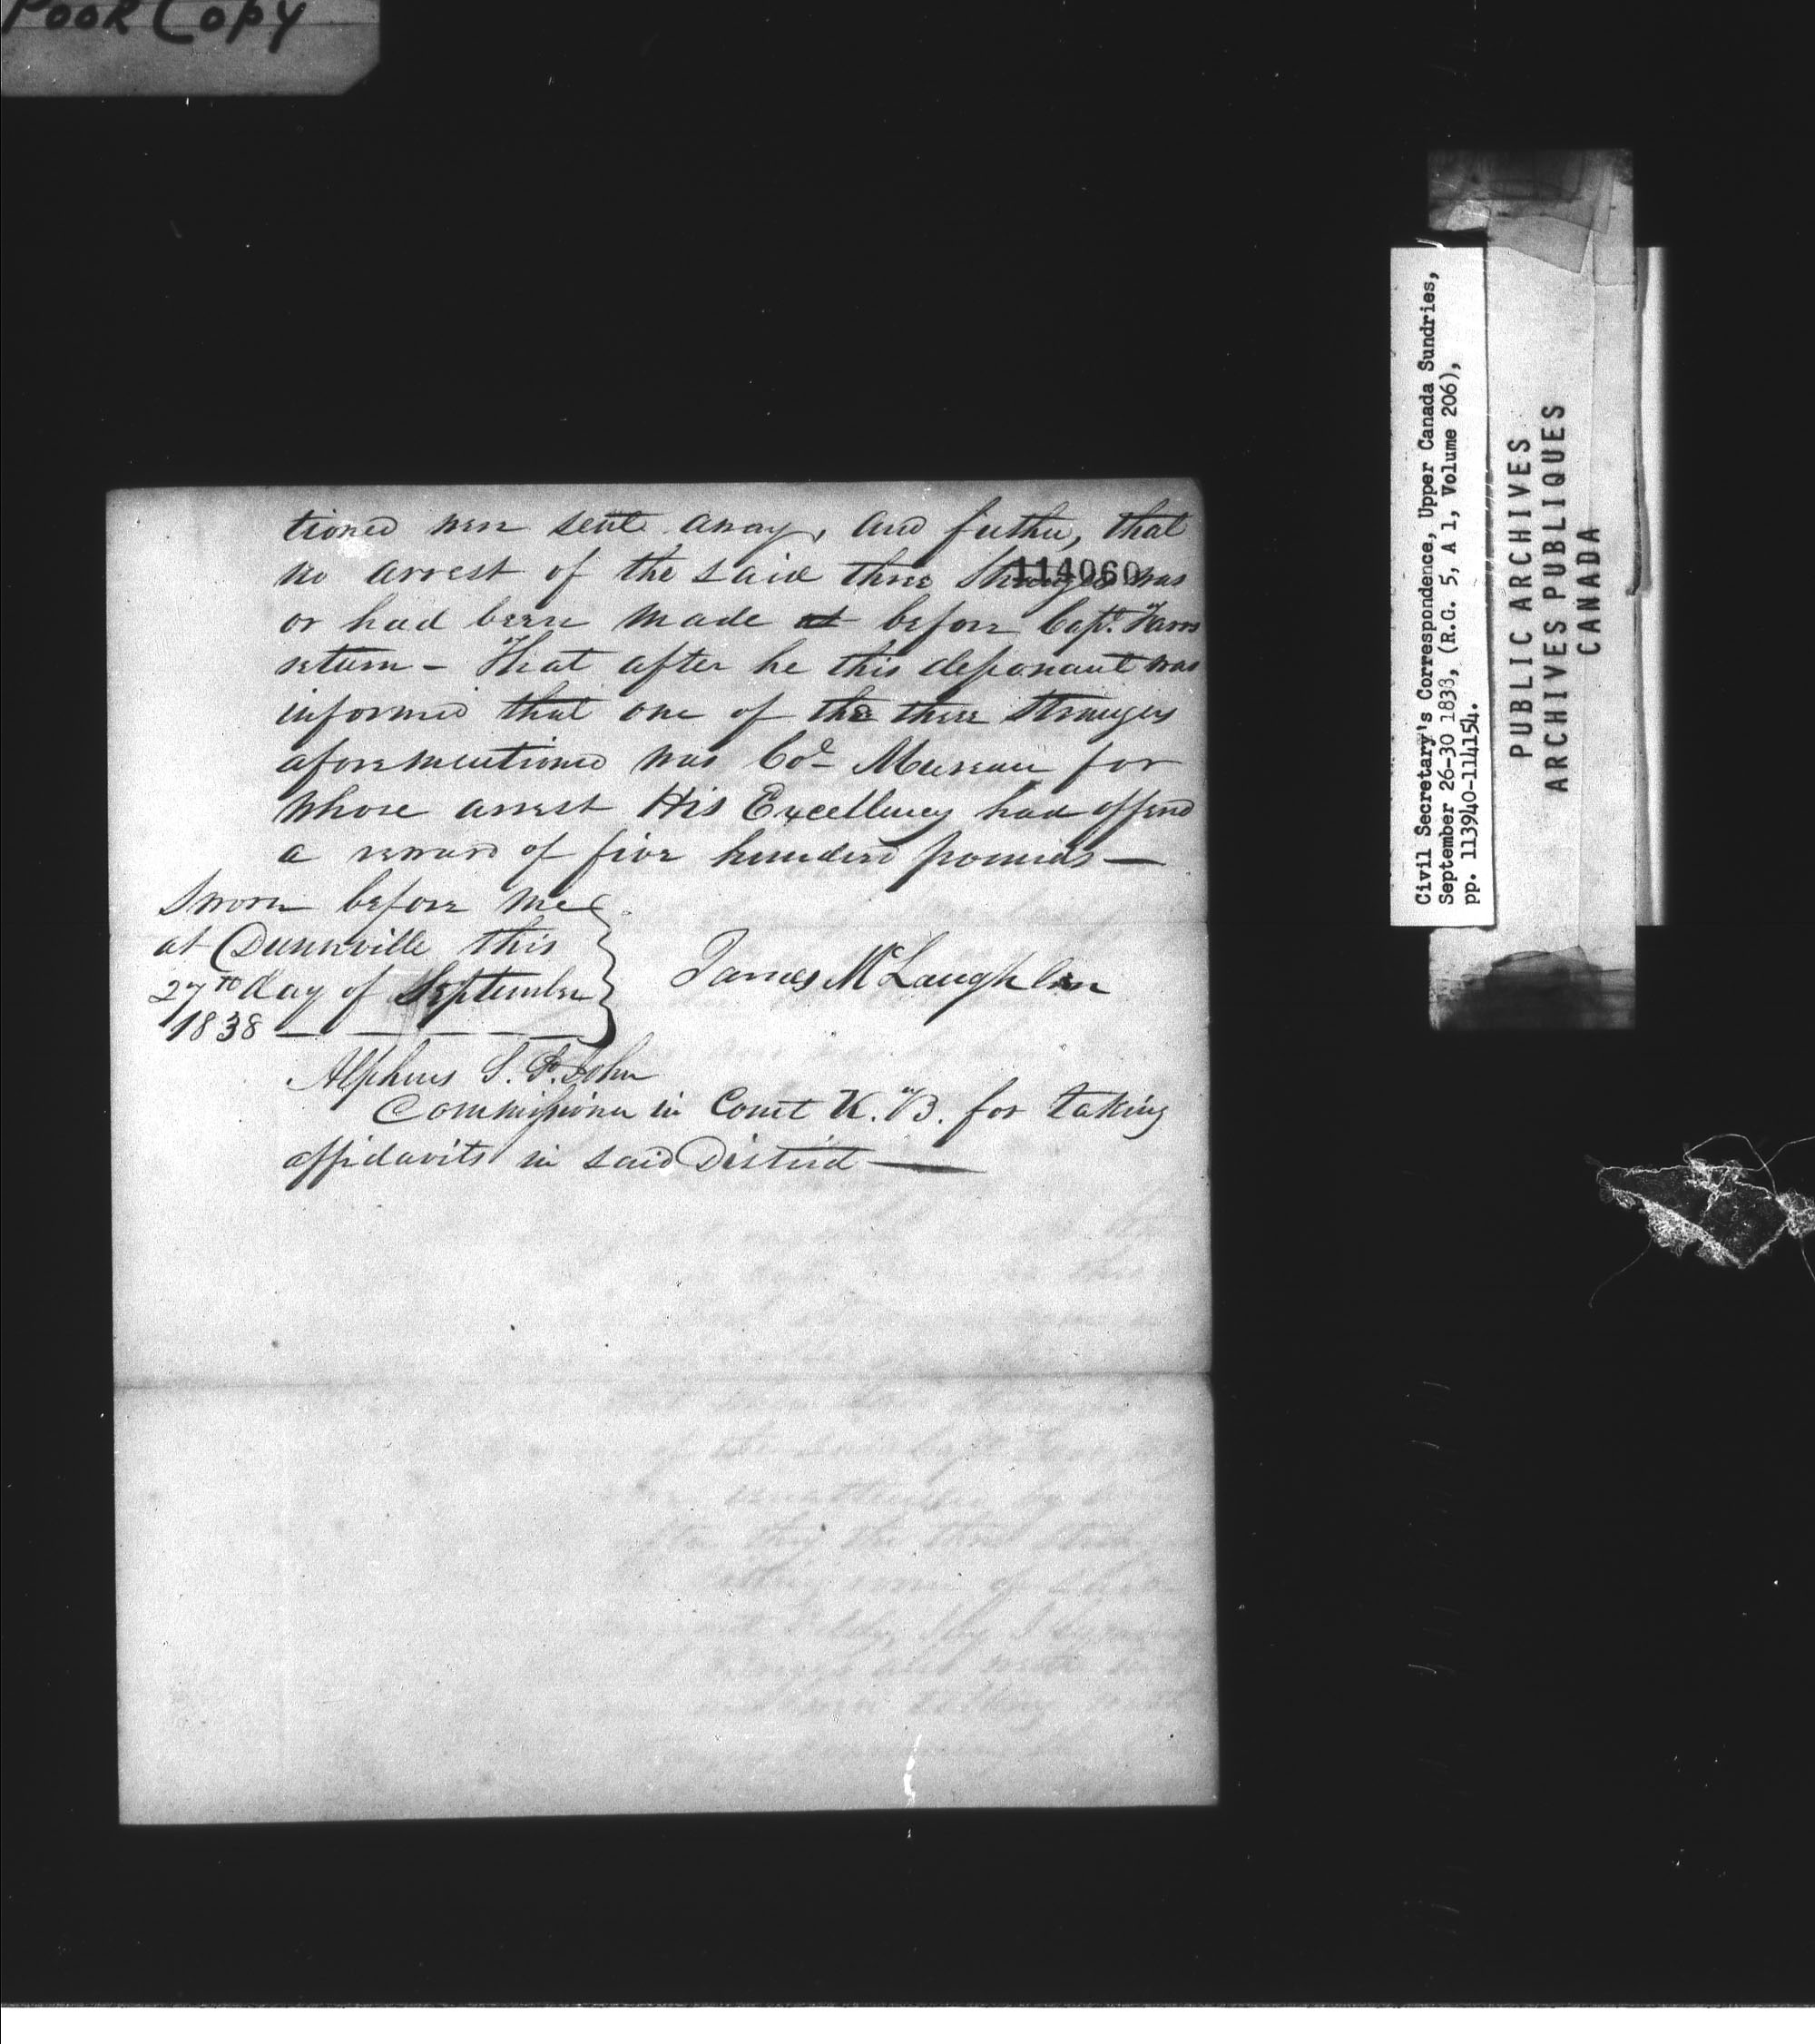 POOR COPY
tioned were sent away, and futher, that
no arrest of the said three Strangers was
114060
or had been made at before Capt. Farrs
return - That after he this deponant was
informed that one of the three Strangers
aforementioned was Col Mureau for
whose arrest His Excellency had offered
a reward of five hundered pounds —
Sworn before me
at Dunnville this
27th day of September
1838 —
James McLaughlen
Alpheus S. St. John
Commissioner in Court K. B. for taking
affidavits in said District —
Civil Secretary's Correspondence, Upper Canada Sundries,
September 26-30 1838, (R.G. 5, A 1, Volume 206),
pp. 113940-114154.
PUBLIC ARCHIVES
ARCHIVES PUBLIQUES
CANADA